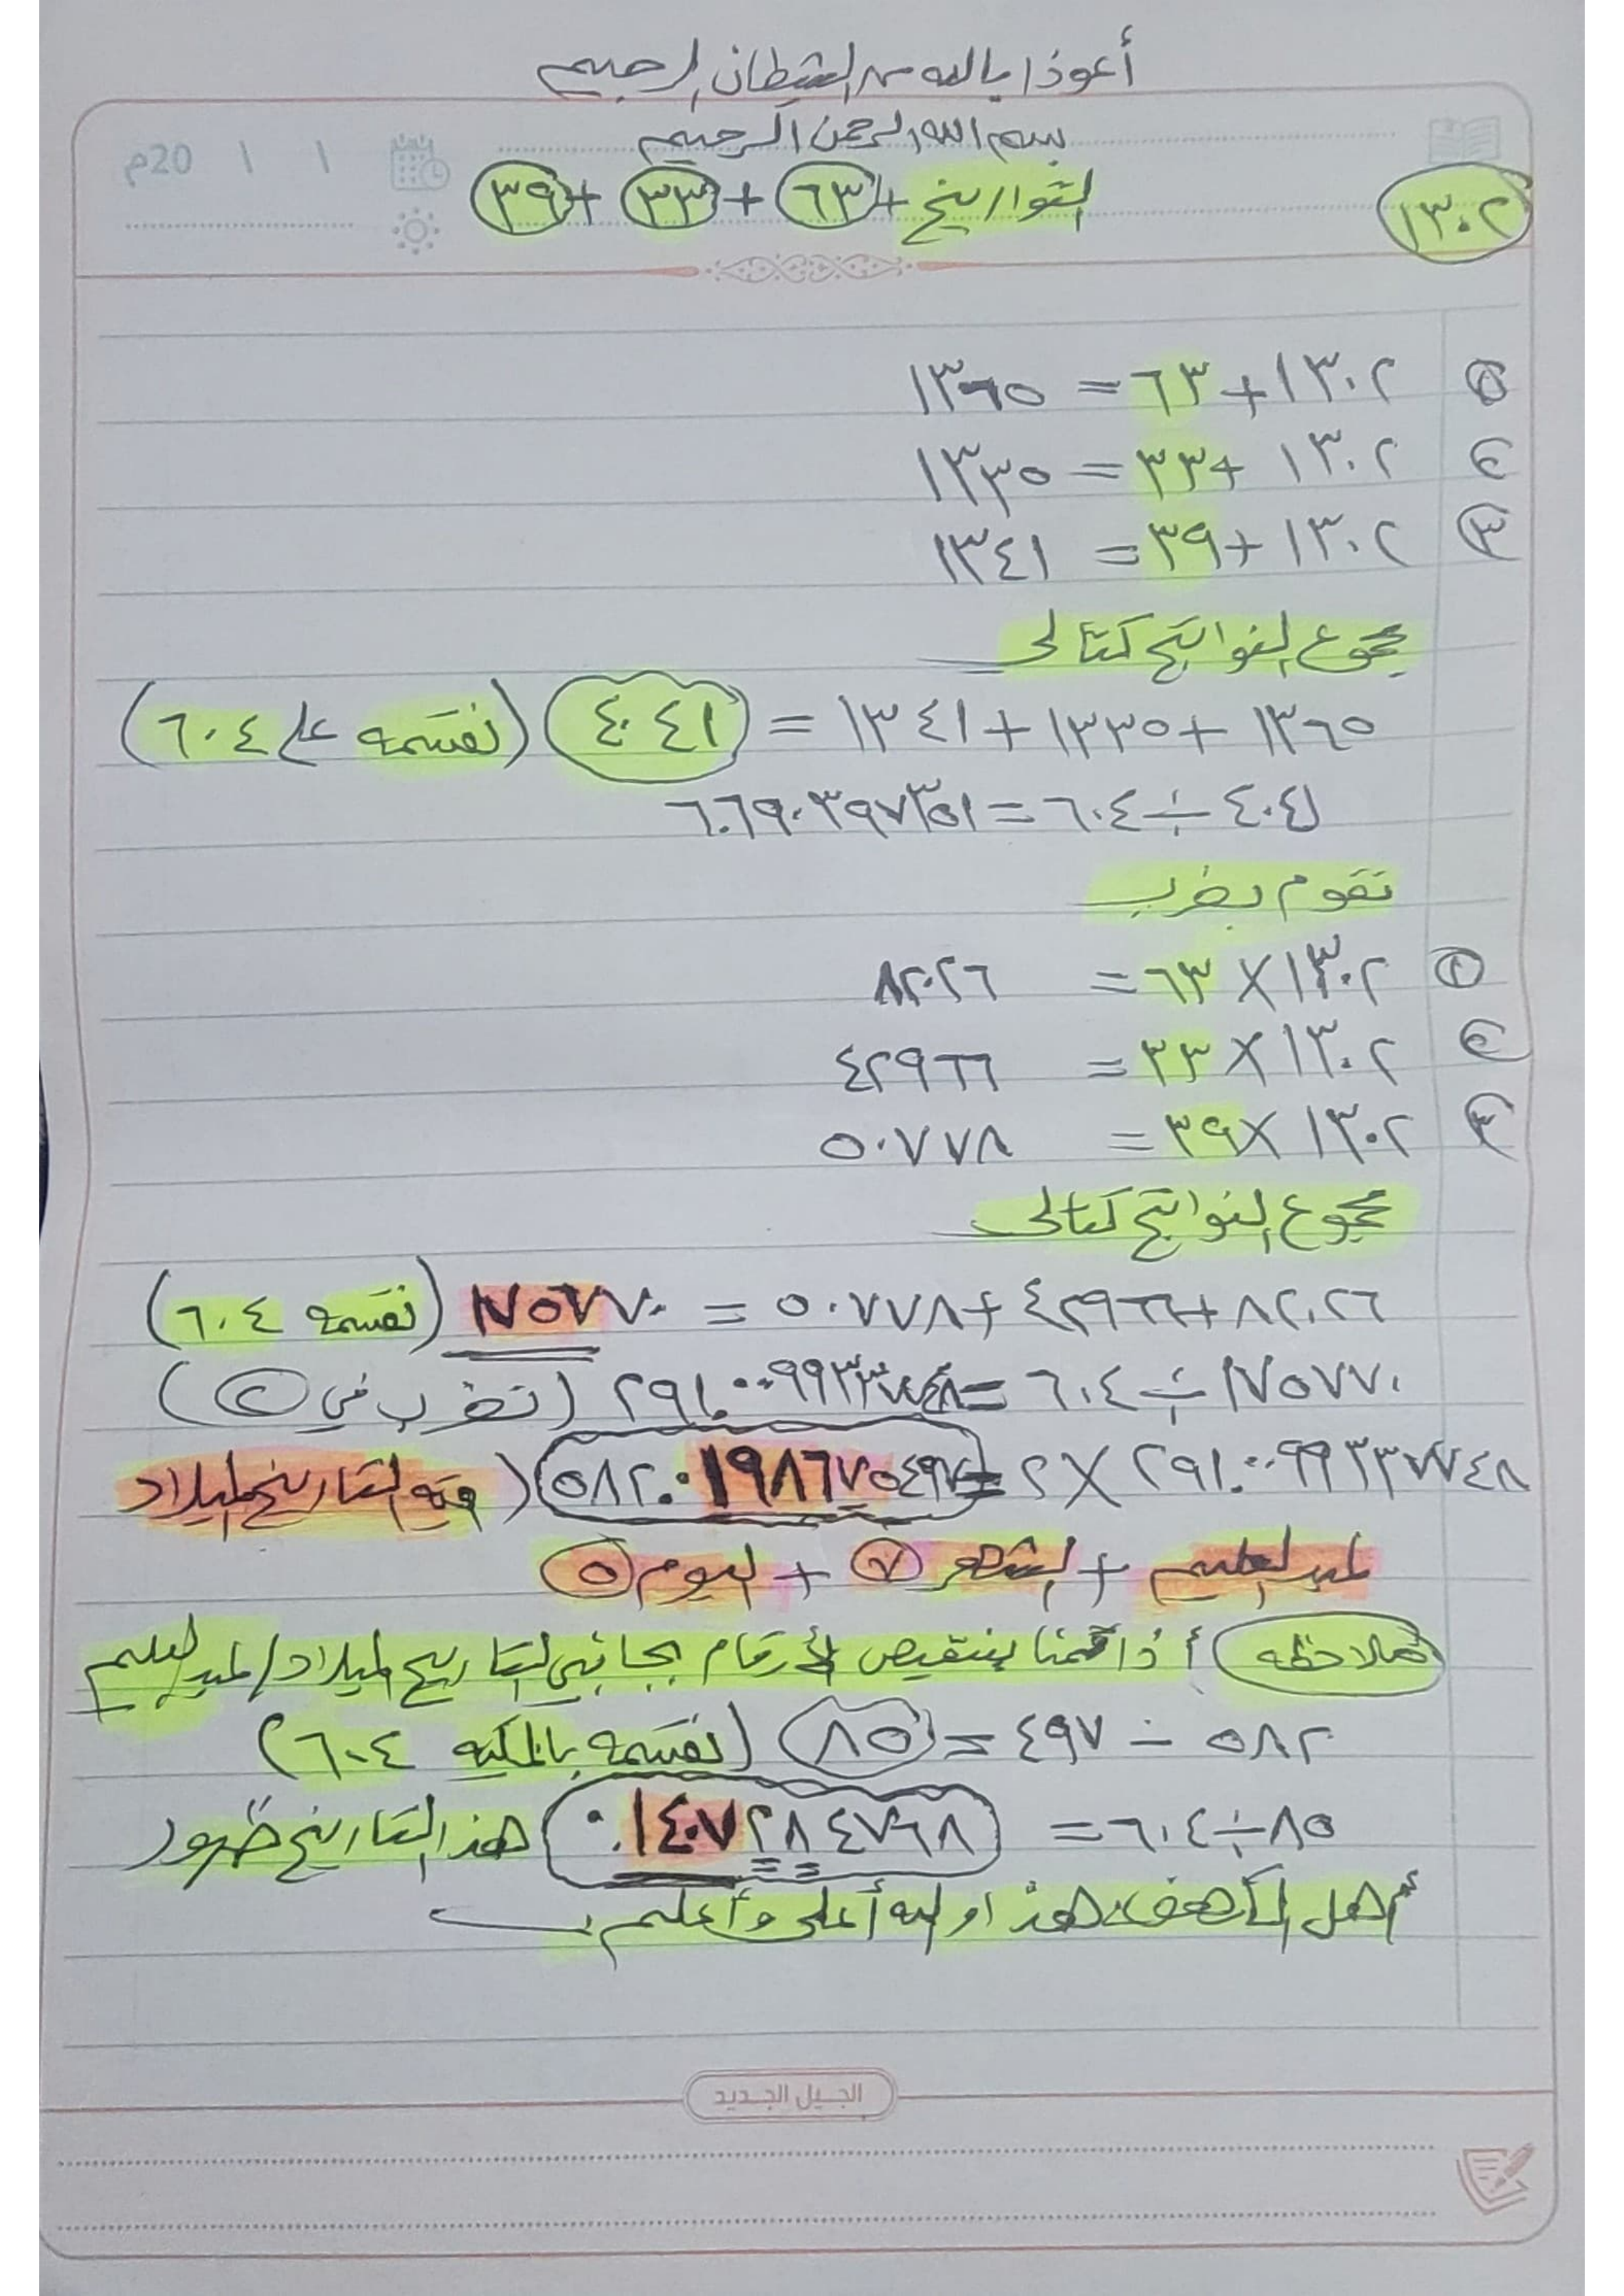 أعوذا بالله من الشيطان الرجيم
بسم الله الرحمن الرحيم
١ ١ 20م
١٣٠٢ التواريخ + ٦٣ + ٣٣ + ٣٩
١ ١٣٠٢ + ٦٣ = ١٣٦٥
٢ ١٣٠٢ + ٣٣ = ١٣٣٥
٣ ١٣٠٢ + ٣٩ = ١٣٤١
مجموع النواتج كتالى
١٣٦٥ + ١٣٣٥ + ١٣٤١ = ٤٠٤١ (نقسمه على ٦٠٤)
٤٠٤١ ÷ ٦٠٤ = ٦.٦٩٠٣٩٧٣٥١
نقوم بضرب
١ ١٣٠٢ × ٦٣ = ٨٢٠٢٦
٢ ١٣٠٢ × ٣٣ = ٤٢٩٦٦
٣ ١٣٠٢ × ٣٩ = ٥٠٧٧٨
مجموع النواتج كتالى
٨٢٠٢٦ + ٤٢٩٦٦ + ٥٠٧٧٨ = ١٧٥٧٧٠ (نقسمه ٦٠٤)
١٧٥٧٧٠ ÷ ٦٠٤ = ٢٩١.٠٠٩٩٣٣٧٧٤٨ (نضرب في ٢)
٢٩١.٠٠٩٩٣٣٧٧٤٨ × ٢ = ٥٨٢.٠١٩٨٦٧٥٤٩٧ (فيه التاريخ لميلاد
+ الشهر ٧ + اليوم ٥
ملاحظه) أذا قمنا بتنقيص الأرقام بجانبي التاريخ لميلاد /
٥٨٢ - ٤٩٧ = ٨٥ (نقسمه ٦٠٤)
٨٥ ÷ ٦٠٤ = ٠.١٤٠٧٢٨٤٧٦٨ هذ التاريخ ظهور
أهل الكهف هذا والله أعلى وأعلم
الجيل الجديد